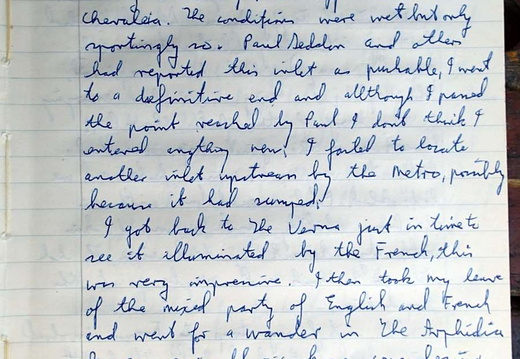 Chevalier. The conditions were wet but only
sportingly so. Paul Seddon and others
had reported this inlet as pushable, I went
to a definitive end and although I passed
the point reached by Paul I don't think I
entered anything new. I failed to locate
another inlet upstream by the Metro, possibly
because it had sumped.
I got back to the Verna just in time to
see it illuminated by the French, this
was very impressive. I then took my leave
of the mixed party of English and French
and went for a wander in the Arphidia